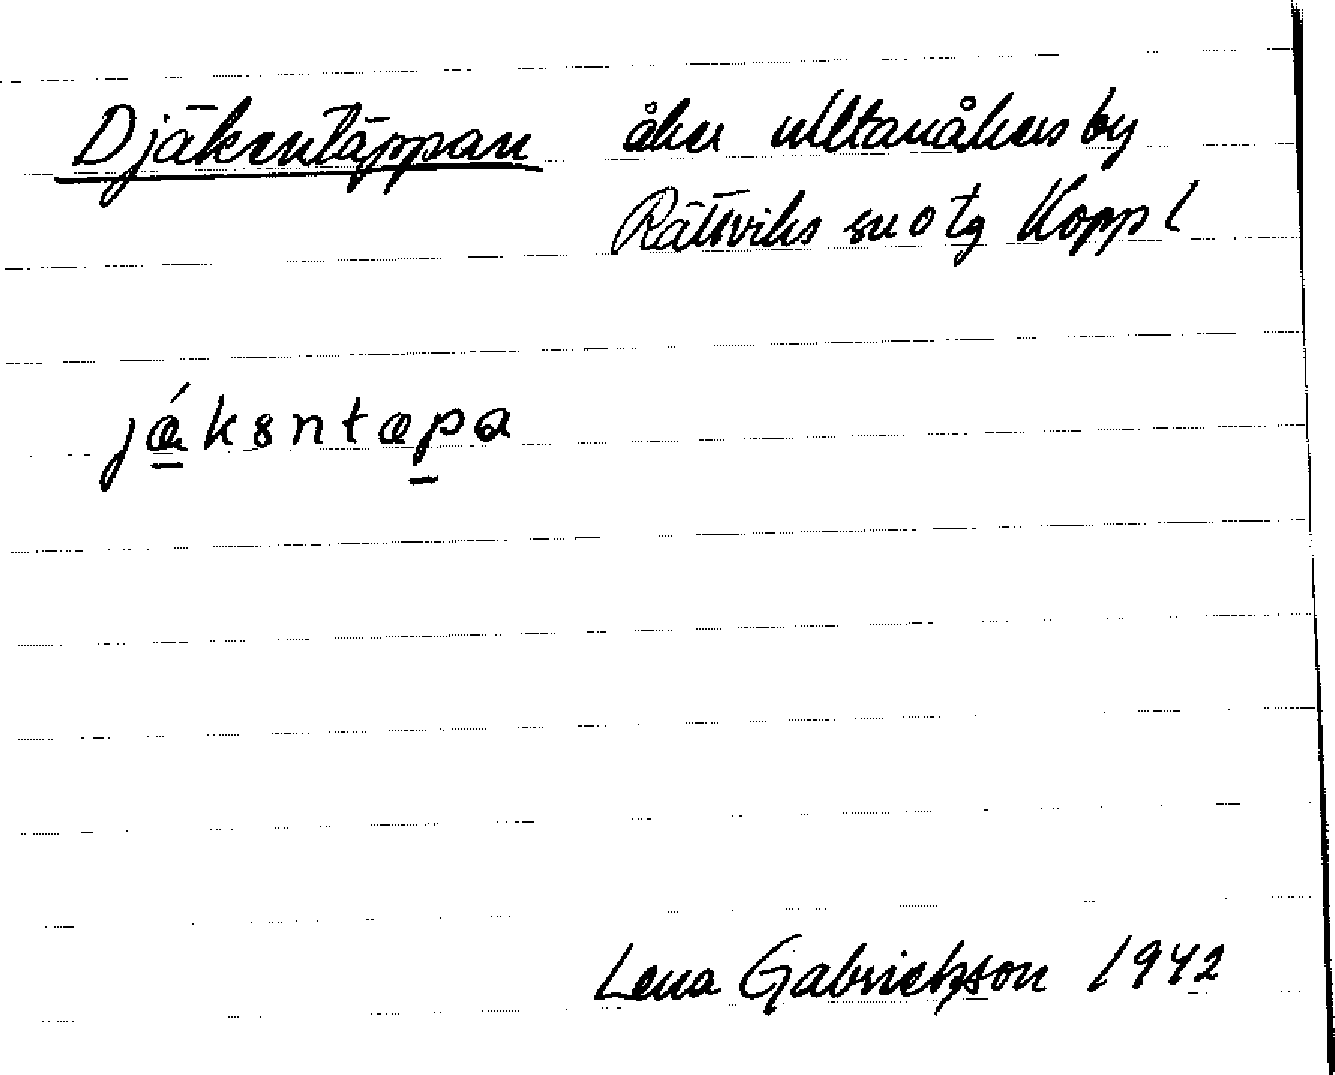 Djäkentäppan åker Ultanåkers by
Rättviks sn o tg Koppl
jǽksntæpa
Lena Gabrielsson 1942